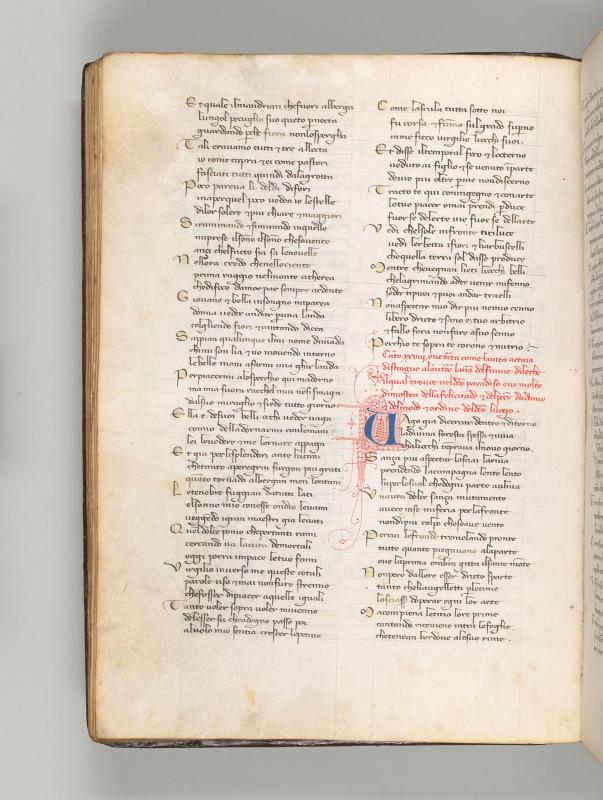 Et quale ilmandrian chefuori alberga
lungol peculglio suo queto pnocta
guardando pche fiera nonlosperghi
Tali eravamo tutti & tre allocta
io come capra & ei come pastori
fasciati tutti quindi dalagrotta
Poco parena li deldi difori
ma perquel poco vedea io lestelle
dilor solere & piu chiare & maggiori
Si ruminando & simirando inquelle
mi prese ilsono ilsono chesouente
anzi chelfacto sia sa lenouelle
Nellora credo chenelloriente
prima raggio nelmonte citherea
chedifoco damor par sempre ardente
Giouane & bella insongno miparea
donna vedere andar puna landa
coglliendo fiori & cantando dicea
Sappia qualunque ilmi nome dimada
chiami son lia & uo mouendo intorno
lebelle mani afarmi una ghirlanda
Perpiacermi alospecchio qui madorno
ma mia suora rachel mai nosi smaga
dalsuo miraglio & siede tutto giorno
Ella e desuoi belli occhi veder vaga
comio delladornarmi conlemani
lei louedere & me lornare appaga
Et gia perlisplendori ante lucani
chetanto aperegrin surgon piu grati
quato tornado albergan men lontani
Letenebre fuggian datutti lati
elsonno mio conesse ondio levami
veggedo igran maestri gia levati
Quel dolce pomo chepertanti rami
cercando va lacura demortali
oggi porra inpace letue fami
Virgilio inverso me queste cotali
parole uso & mai nonfuro strenne
chefosser dipiacer aquelle iguali
Tanto uoler sopra uoler mivenne
delesser su cheadogne passo poi
aluolo mio sentia crescer lepenne
Come lascala tutta sotto noi
fu corsa & fumo sulgrado supno
inme ficco virgilio liocchi suoi
Et disse iltemporal foco & lecterno
veduto ai figlio & se venuto iparte
dovio piu oltre pme nondiscerno
Tracto to qui coningegno & conarte
lotuo piacer omai prendi pduce
fuor se delerte vie fuor se dellarte
Vedi chelsole infronte tiriluce
vedi lerbetta ifiori & liarbuscelli
chequella terra sol dasse produce
Mentre chevegnan lieti liocchi belli
chelagrimando adte venir mifenno
seder tipuoi & puoi andar traelli
Nonaspectar mio dir piu nemio cenno
libero dricto & sano e tuo arbitrio
& fallo fora nonfare asuo senno
Perchio te sopra te corono & mitrio
Caro xxviij oue tracta come lauita activa
distingue alautore lana delfiume dilethe
ilqual trouoe neldco paradiso oue molto
dimostra della felicitade & delpcco dadamo
& delmodo & ordine deldco luogo
Vago gia dicercar dentro & ditorno
ladiuina foresta spessa & uiua
chaliocchi temperaua ilnouo giorno
Sanza piu aspectar lasciai lariua
prendendo lacampagna lento lento
super losuol chedogni parte auliua
Unaura dolce sanza mutamento
avere inse miferia per lafronte
nondipiu colpo chesoaue vento
Percui lefronde tremolando pronte
tutte quante piegauano alaparte
oue laprima ombra gitta ilsanto mote
Nonpero dalloro esser dricto sparte
tanto cheliaugelletti plecime
lasciassero doperar ogni lor arte
Ma conpiena letitia lore prime
cantando riceuieno intra lefoglie
chetenean bordone alesue rime